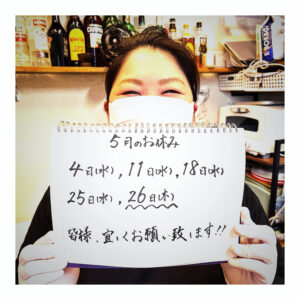 5月のお休み
4日(水), 11日(水), 18日(水)
25日(水), 26日(木)
皆様、宜しくお願い致します!!